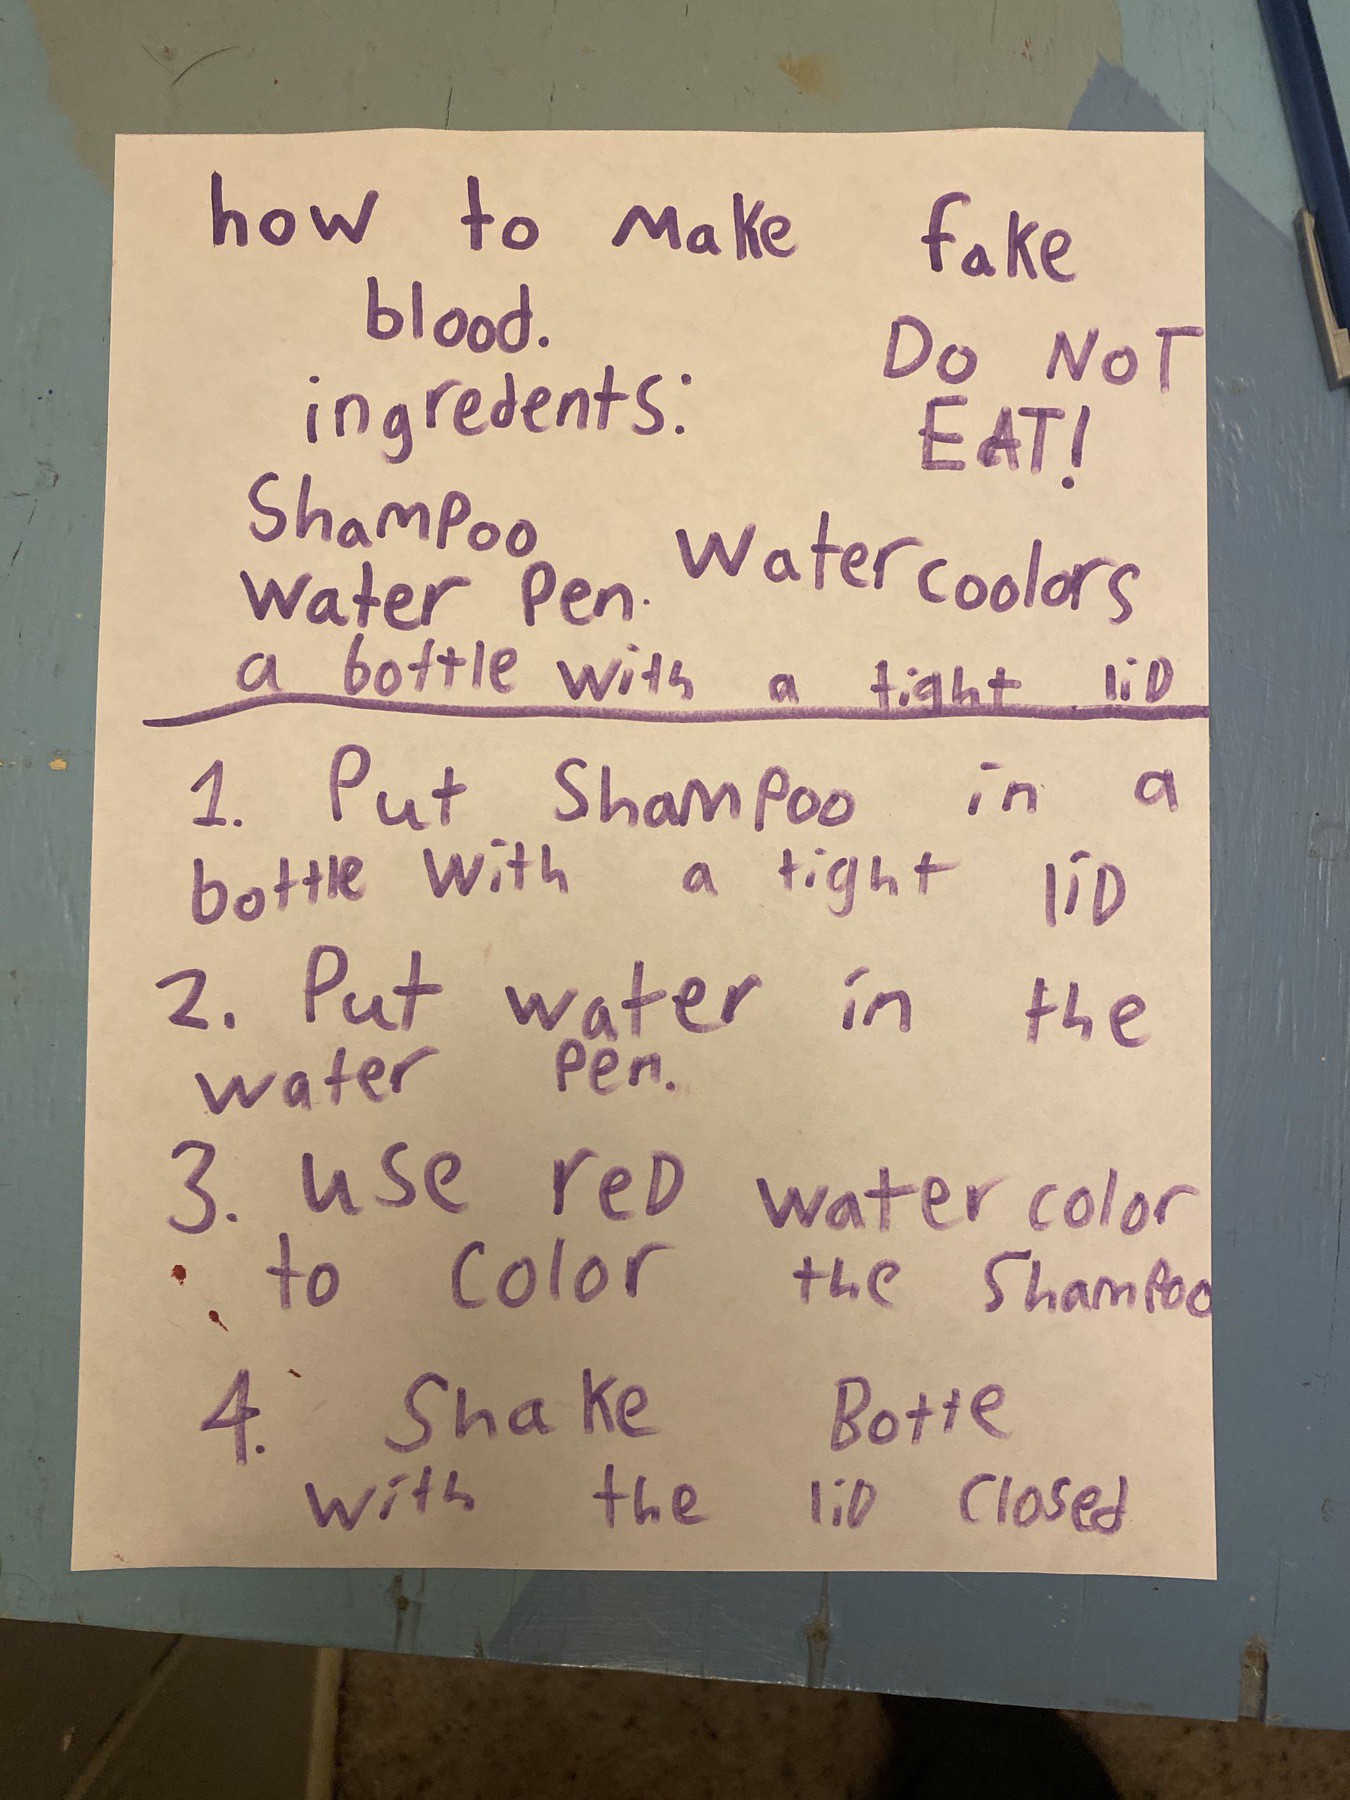 how to make fake
blood.
DO NOT
EAT!
ingredents:
Shampoo
Watercoolors
Water Pen.
a bottle with a tight liD
1. Put Shampoo in a
bottle with a tight liD
2. Put water in the
water pen.
3. use reD watercolor
to color the Shampoo
4. Shake Botte
with the liD closed